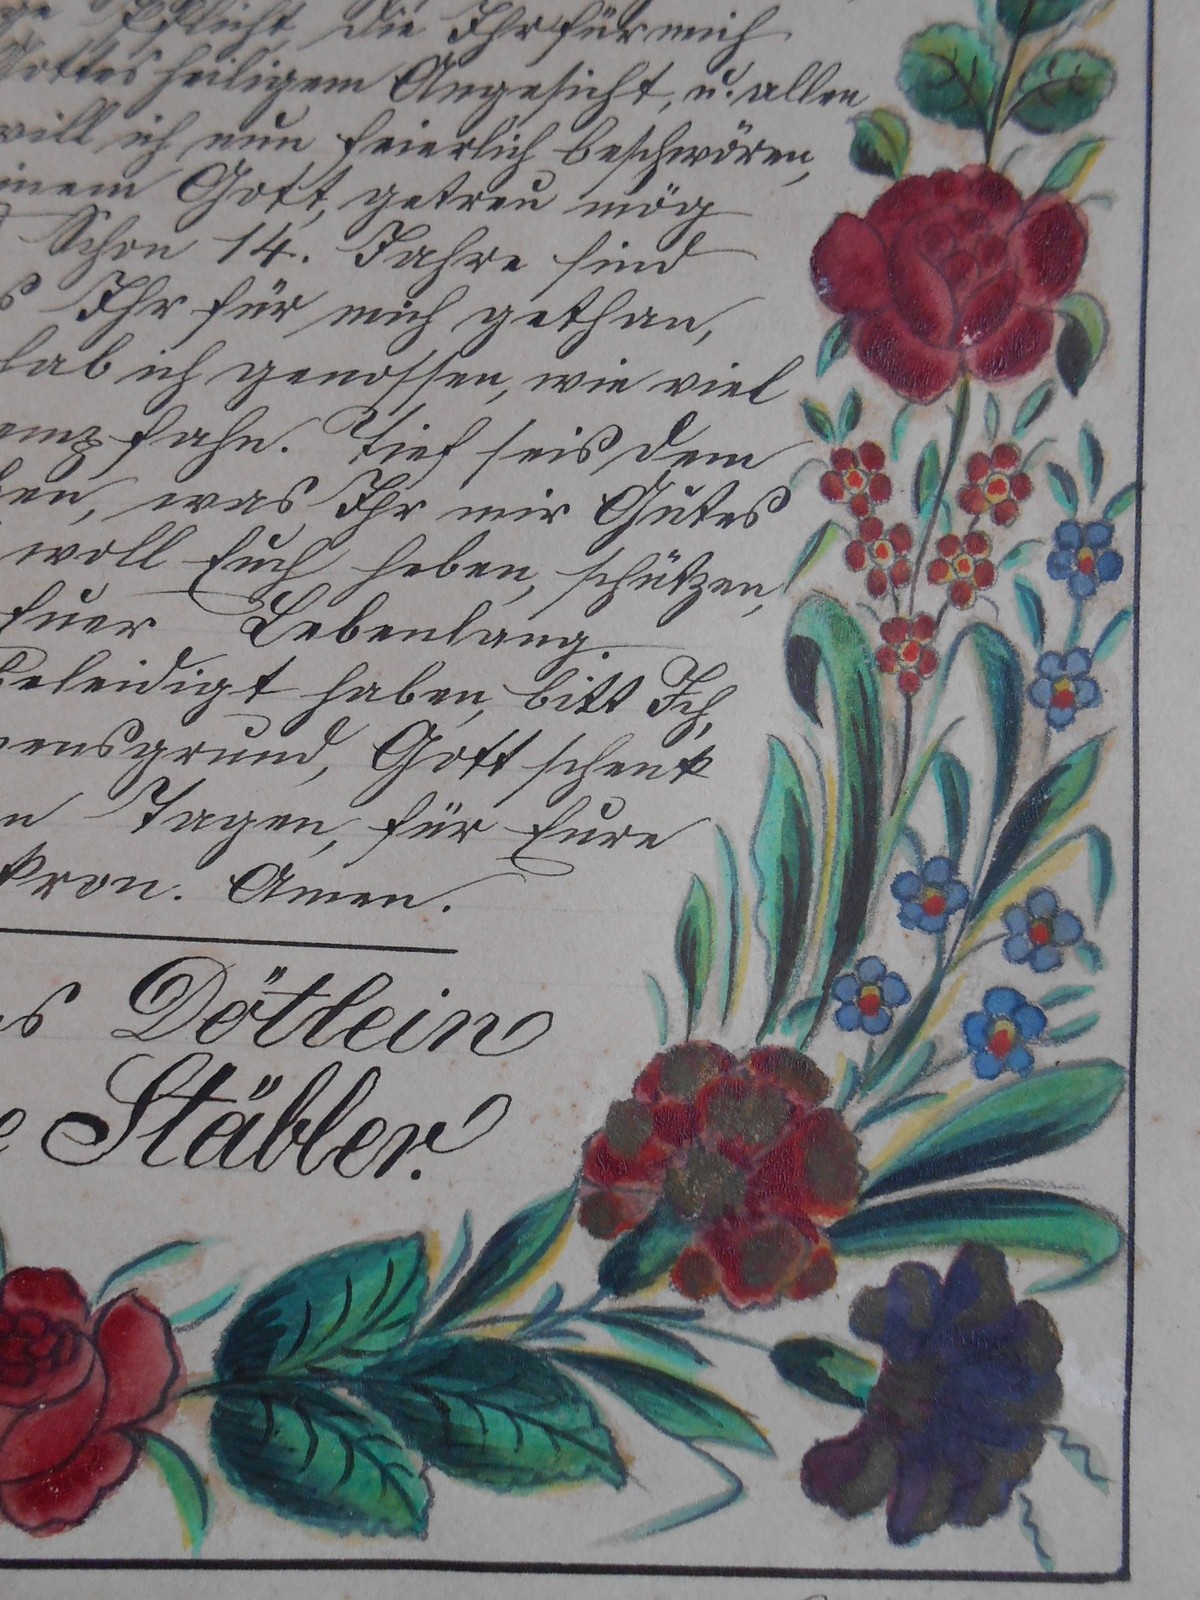 Pflicht, die Ihr für mich
Gottes heiligem Angesicht, u. allen
will ich nun feierlich beschwören,
meinem Gott, getreu mög
Schon 14. Jahre sind
Ihr für mich gethan,
hab ich genossen, wie viel
empfahn. Tief seis dem
was Ihr mir Gutes
woll Euch heben, schützen,
Euer Lebenlang.
beleidigt haben, bitt Ich,
ensgrund, Gott schenk
n Tagen, für Eure
kron. Amen.
Dötlein
Stäbler.